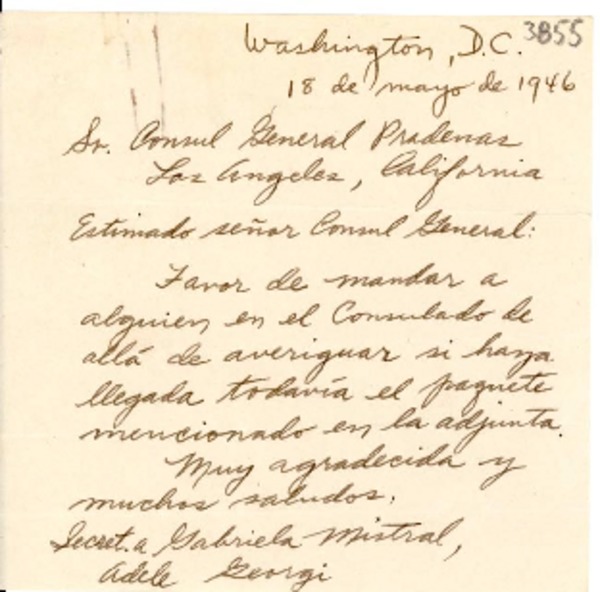 3855
Washington, D.C.
18 de mayo de 1946
Sr. Consul General Pradenas
Los Angeles, California
Estimado señor Consul General:
Favor de mandar a
alguien en el Consulado de
allá de averiguar si haya
llegada todavía el paquete
mencionado en la adjunta.
Muy agradecida y
muchos saludos,
Secret. a Gabriela Mistral,
Adele Georgi